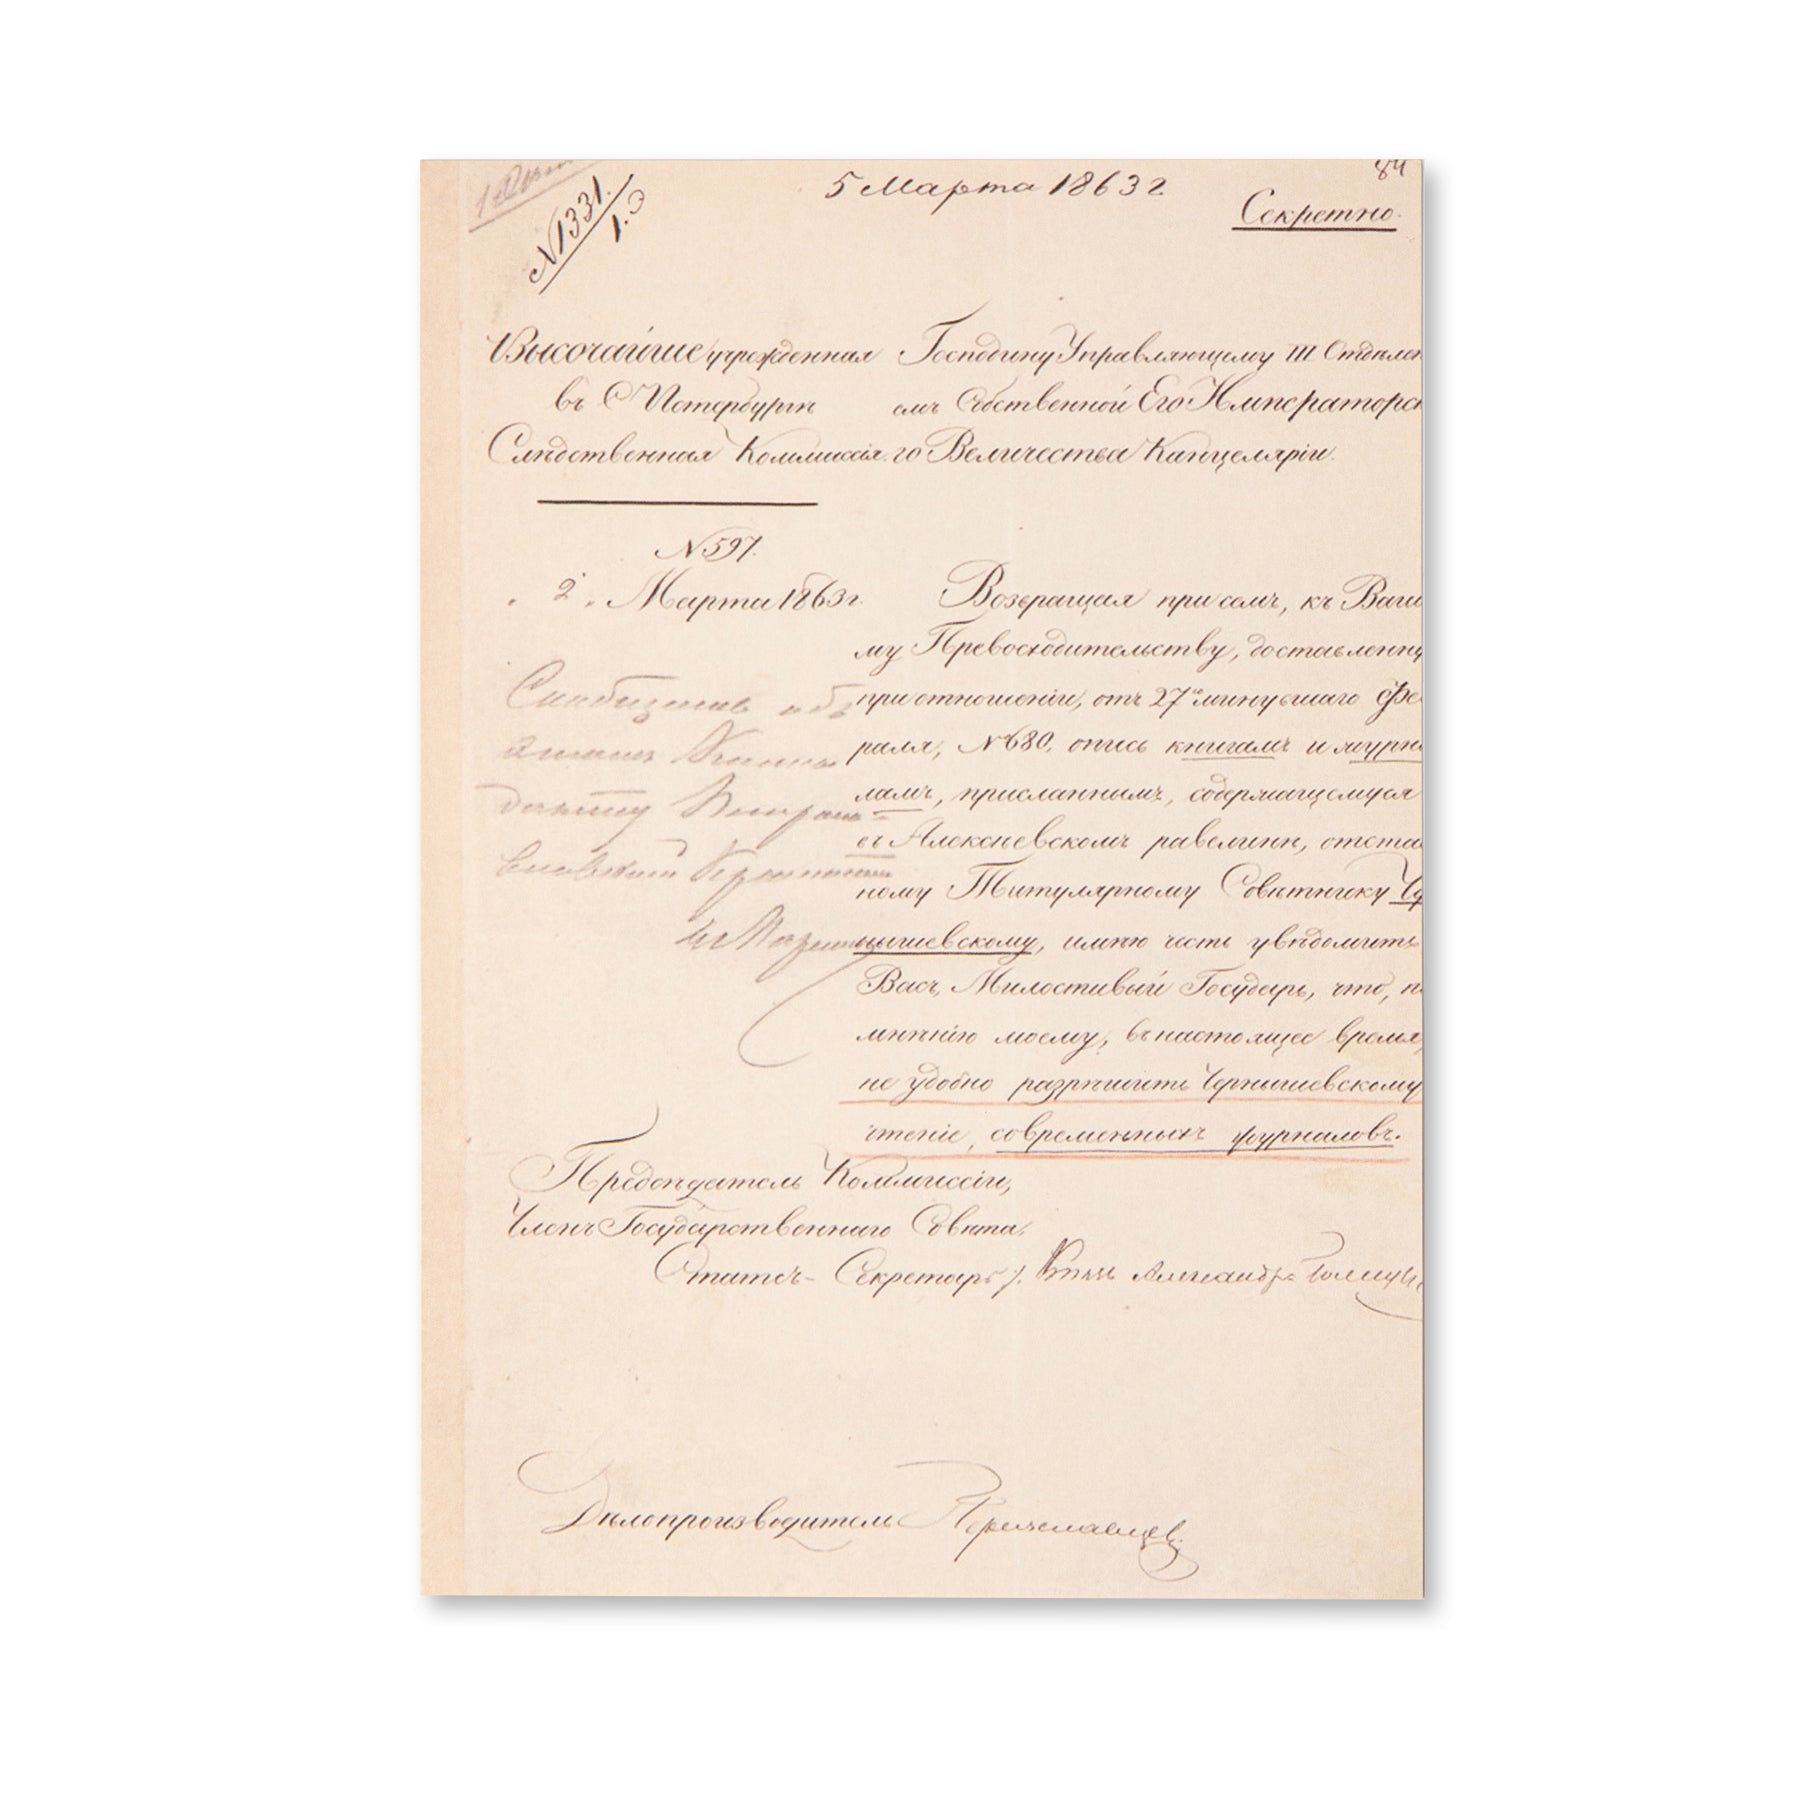 84
5 Марта 1863 г
Секретно.
№1331.
1. Э
Высочайше учрежденная
въ С Петербургѣ
Слѣдственная Коммиссія.
Господину Управляющему III Отдѣлен
емъ Собственной Его Императорск
го Величества Канцеляріи.
№ 597.
„ 2 „ Марта 1863 г.
Возвращая при семъ, къ Ваше
му Превосходительству, доставленну
при отношеніи, отъ 27го минувшаго Фе
раля, № 680, опись книгамъ и журна
ламъ, присланнымъ, содержащемуся
въ Алексѣевскомъ равелинѣ, отстав
ному Титулярному Совѣтнику Че
нышевскому, имѣю честь увѣдомить
Васъ, Милостивый Государь, что, по
мнѣнію моему, въ настоящее время,
не удобно разрѣшить Чернышевскому
чтеніе современныхъ журналовъ.
Сообщить объ
этомъ Комен
данту Петропав
ловской Крѣпости
Предсѣдатель Коммиссіи,
Членъ Государственнаго Совѣта,
Статсъ-Секретарь Князь Александръ Голицы
Дѣлопроизводитель